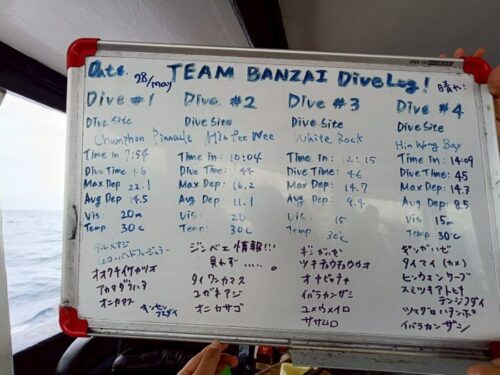 Date. 28/may TEAM BANZAI DiveLog!
Dive #1
Dive Site
Chumphon Pinnacle
Time in 7:54
Dive Time 46
Max Dep 22.1
Avg Dep 14.5
Vis 20m
Temp 30c
オオクチイケカツオ
アカマダラハタ
オニカマス
キンセンフエダイ
Dive #2
Dive Site
Time in: 10:04
Dive Time: 44
Max Dep: 16.2
Avg Dep: 11.1
Vis: 20
Temp: 30c
ジンベエ情報!!!
見れず.....。
タイワンカマス
コガネアジ
オニカサゴ
Dive #3
Dive Site
White Rock
Time in: 12:15
Dive Time: 46
Max Dep: 14.7
Avg Dep: 9.4
Vis: 15
Temp 30c
ギンガハゼ
ツキチョウチョウウオ
イバラカンザシ
ユメウメイロ
ササムロ
Dive #4
Dive Site
Hin Wong Bay
Time in: 14:09
Dive Time: 45
Max Dep: 14.7
Avg Dep: 8.5
Vis: 15m
Temp: 30c
ギンガハゼ
タイマイ (カメ)
スミツキアトヒキ
テンジクダイ
ツマグロハタンポ
イバラカンザシ